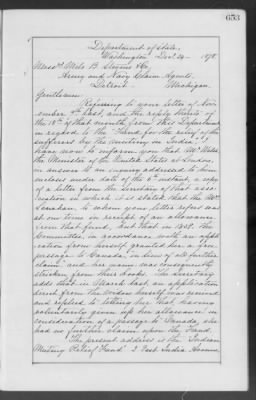 653
Department of State,
Washington Decr 24 1878.
Messrs Milo B. Stevens & Co.
Army and Navy Claim Agents.
Detroit Michigan.
Gentlemen:
Referring to your letter of Nov-
ember 9th last, and the reply thereto of
the 18th of that month, from this Department
in regard to the "Fund for the relief of the
sufferers by the Mutiny in India," I
have now to inform you that Mr Welsh
the Minister of the United States at London,
in answer to an inquiry addressed to him
encloses under date of the 6th instant, a copy
of a letter from the Secretary of that asso-
ciation in which it is stated that the Mrs
to whom your letter refers was
at one time in receipt of an allowance
from that fund, but that in 1858. the
Committee, in accordance with an appli-
cation from himself granted her a free
passage to Canada, in lieu of all further
claim, and her name was consequently
stricken from their books. The Secretary
adds that in March last, an application
direct from the widow herself was received
and replied to telling her that, having
voluntarily given up her allowance, in
consideration of a passage to Canada, she
had no further claim upon the Fund.
The present address is the "Indian
Mutiny Relief Fund" 2 East India Avenue,